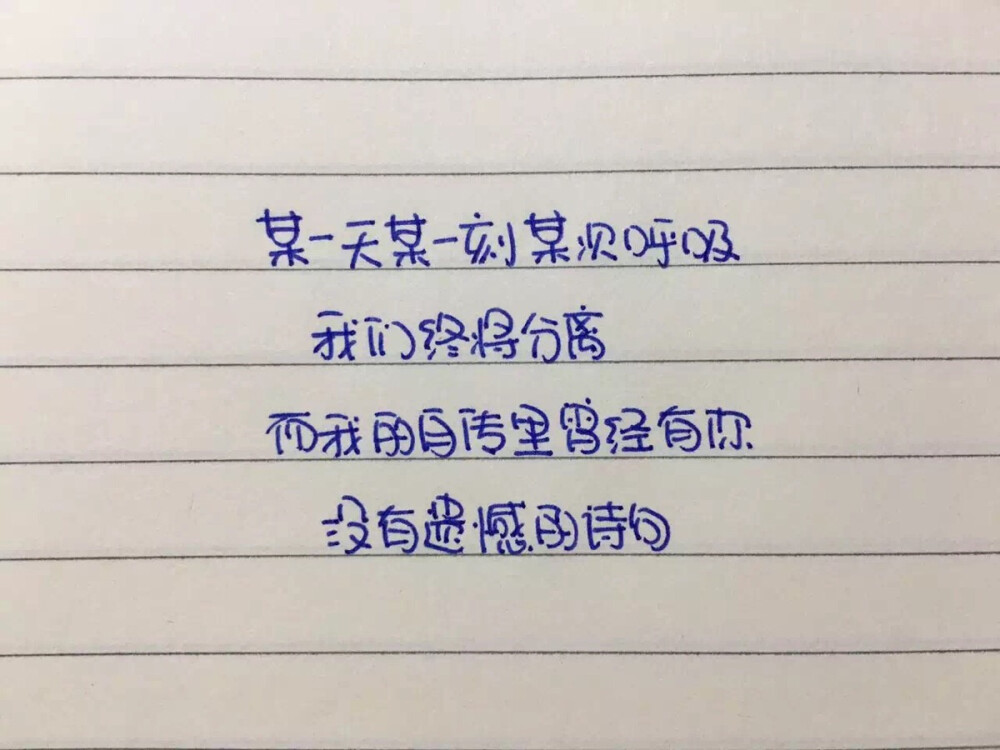 某一天某一刻某次呼吸
我们终将分离
而我的自传里曾经有你
没有遗憾的诗句